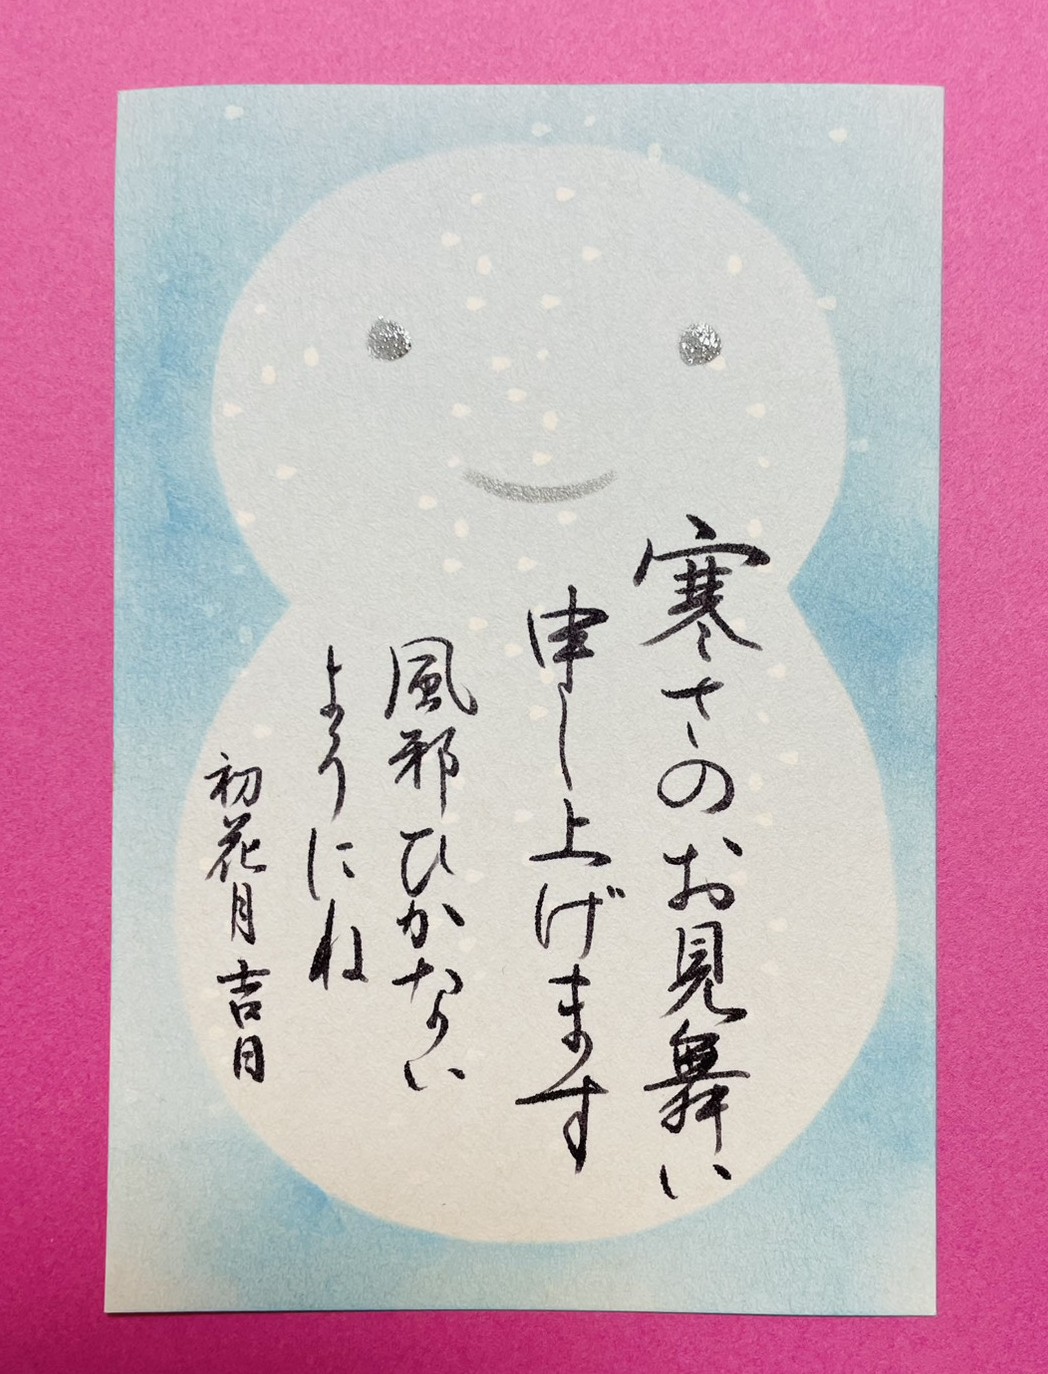 寒さのお見舞い
申し上げます
風邪ひかない
ようにね
初花月吉日